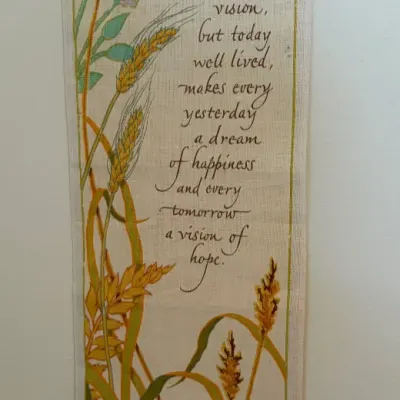 vision,
but today
well lived,
makes every
yesterday
a dream
of happiness
and every
tomorrow
a vision of
hope.